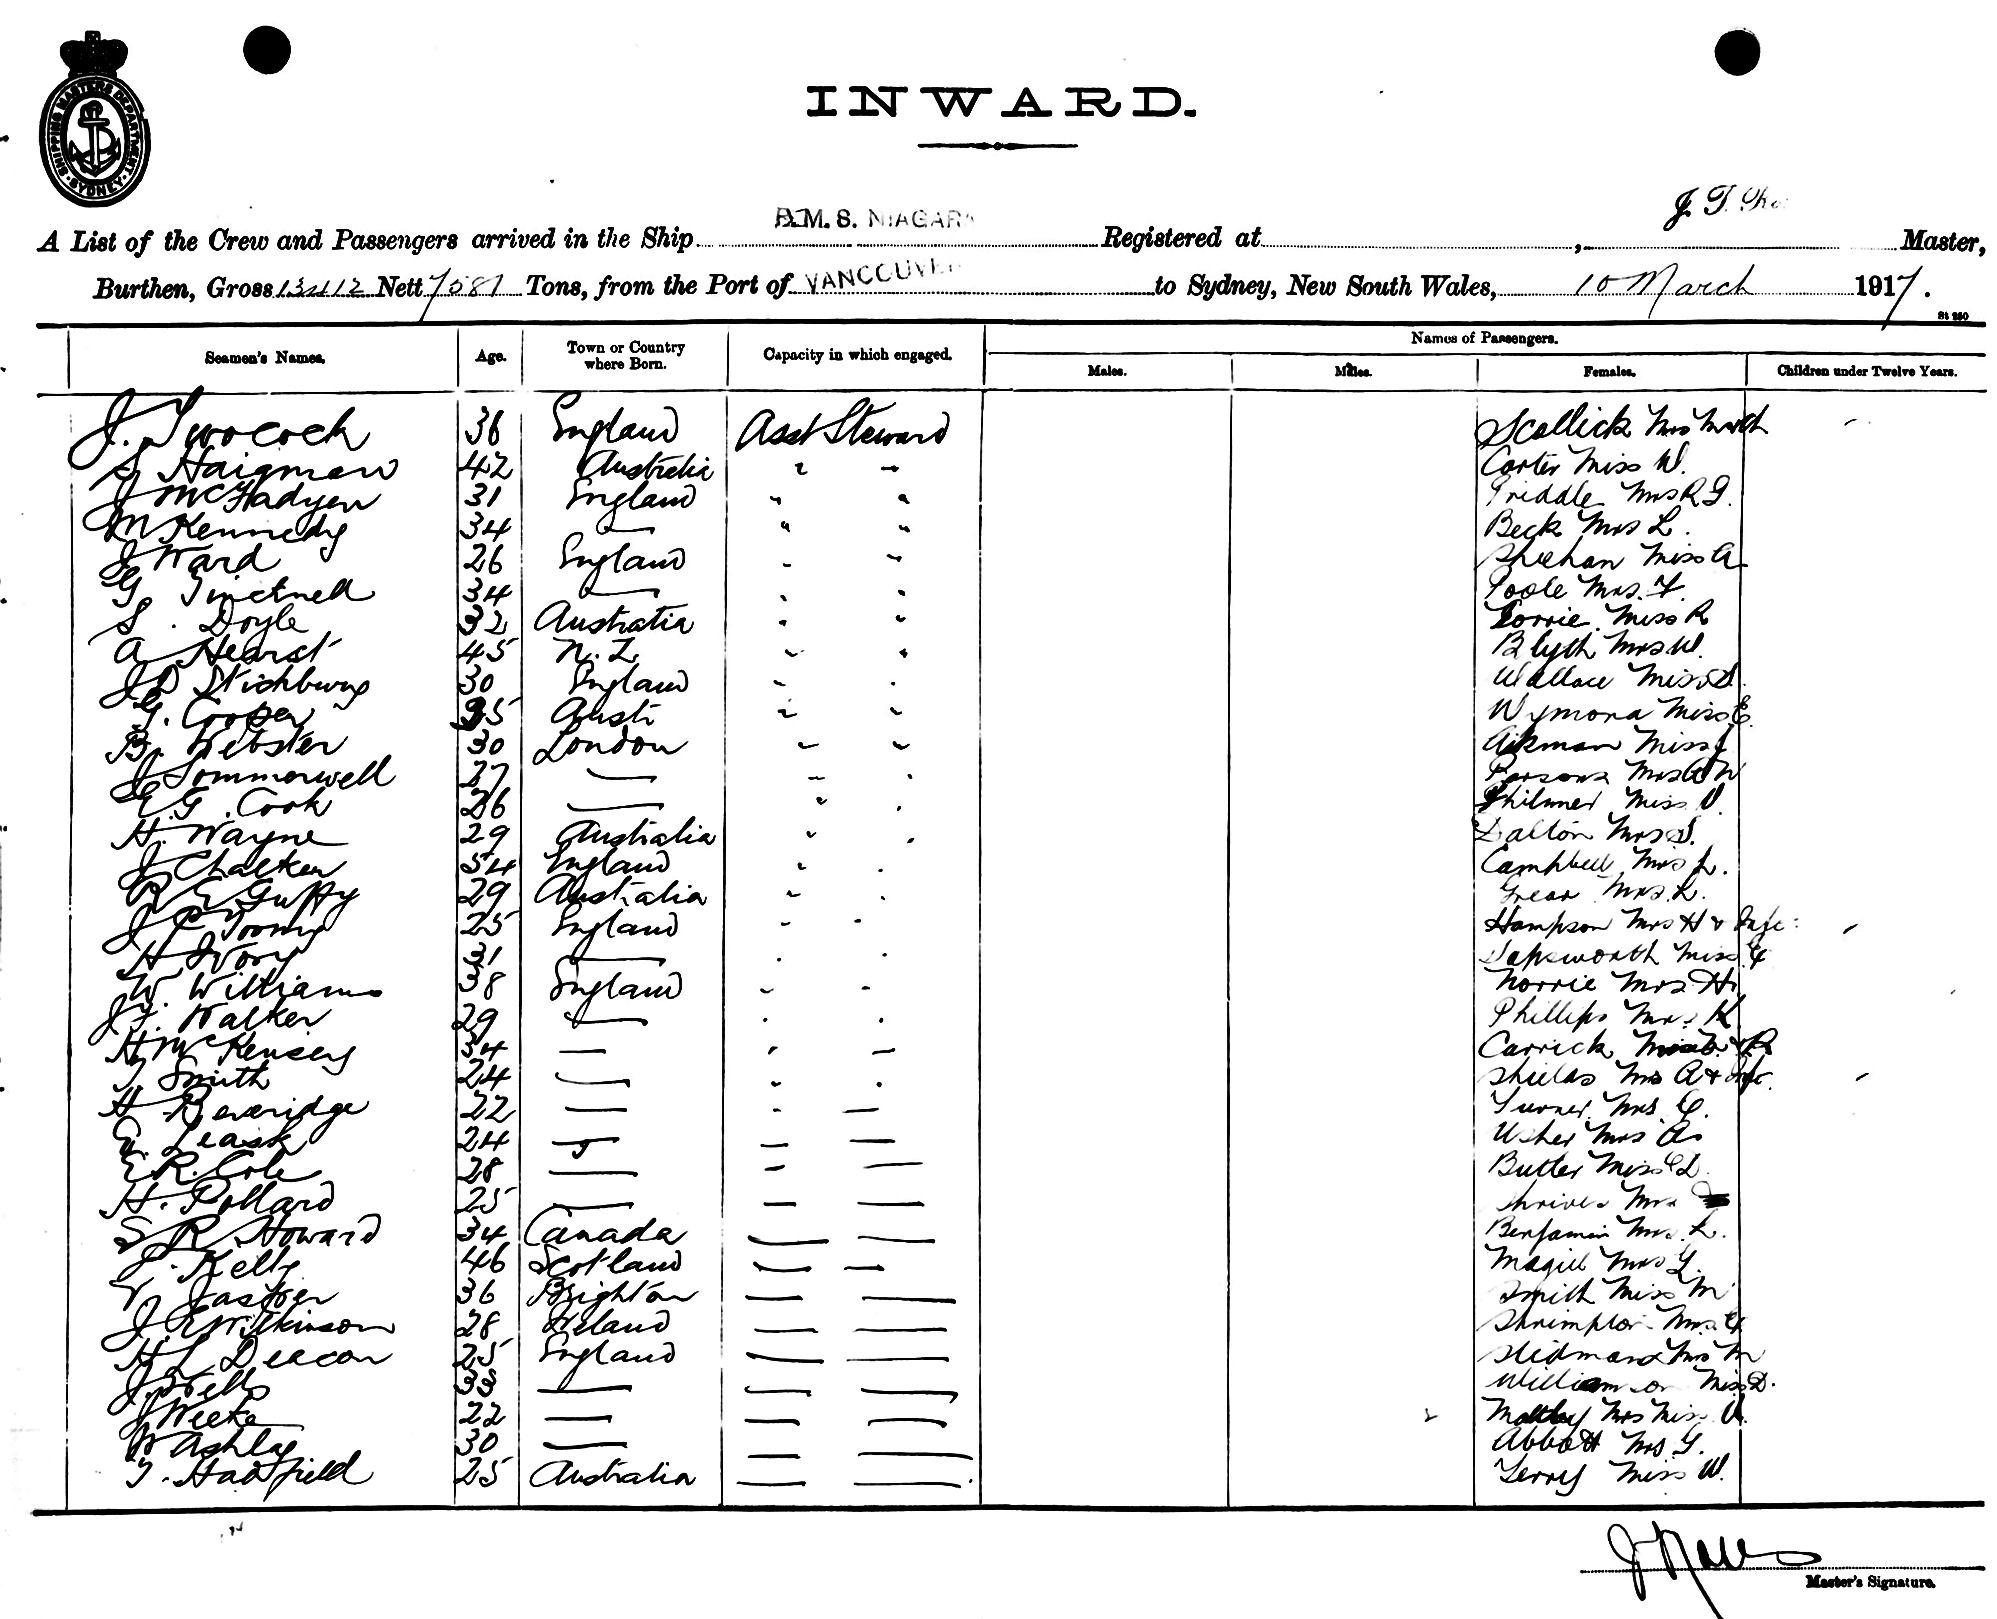 SHIPPING MASTERS DEPARTMENT. SYDNEY
INWARD.
J. T.
A List of the Crew and Passengers arrived in the Ship R.M.S. NIAGARA Registered at , Master,
Burthen, Gross 13412 Nett 7581 Tons, from the Port of VANCOUVER to Sydney, New South Wales, 10 March 1917.
St 250
Seamen's Names. Age. Town or Country where Born. Capacity in which engaged. Names of Passengers.
Males. Males. Females. Children under Twelve Years.
J. Twocock 36 England Asst Steward Scollick Mrs
S Haigman 42 Australia " " Carter Miss W.
J McFadyen 31 England " " Priddle Mrs R G.
M Kennedy 34 — " " Beck Mrs L.
J Ward 26 England " " Sheehan Miss A
G 34 — " " Poole Mrs. F.
S. Doyle 32 Australia " " Lorrie Miss R
A Hearst 45 N.Z " " Blyth Mrs W.
J D Stichbury 30 England " " Wallace Miss S.
G. Cooper 35 Aust " " Wymora Miss E.
B. Webster 30 London " " Aikman Miss J
J Sommerwell 27 — " " Parsons Mrs A W
E. G. Cook 26 — " " Miss V.
H. Wayne 29 Australia " " Dalton Mrs S.
J Chalken 54 England " " Campbell Mrs L.
R E Guffy 29 Australia " Grear Mrs L.
J P Toomy 25 England " " Hampson Mrs H & Inft.
H Ivory 31 — " " Tapsworth Miss E
W. Williams 38 England " " Norrie Mrs H
J F. Walker 29 — " " Phillips Mrs K
H McKensey 34 — " — Carrick & R
T Smith 24 — " " Shields Mrs A & Inft.
H Beveridge 22 — " — Turner Mrs C.
G. Leask 24 — — — Usher Mrs A.
E R. Cole 28 — — — Butler Miss D.
H. Pollard 25 — — — Shrives Mrs
S R Howard 34 Canada — — Benjamin Mrs L.
J. Kelly 46 Scotland — — Magill Mrs G.
V. Jasper 36 Brighton — — Smith Miss M
J. E Wilkinson 28 Ireland — — Shrimpton Mrs E
H L Deacon 25 England — — Stidman Mrs M
J. Wells 33 — — — Williamson Miss D.
J Weeke 22 — — — Maltby Miss V.
W Ashley 30 — — — Abbott Mrs G.
T. Hadfield 25 Australia — — Terry Miss W.
Master's Signature.